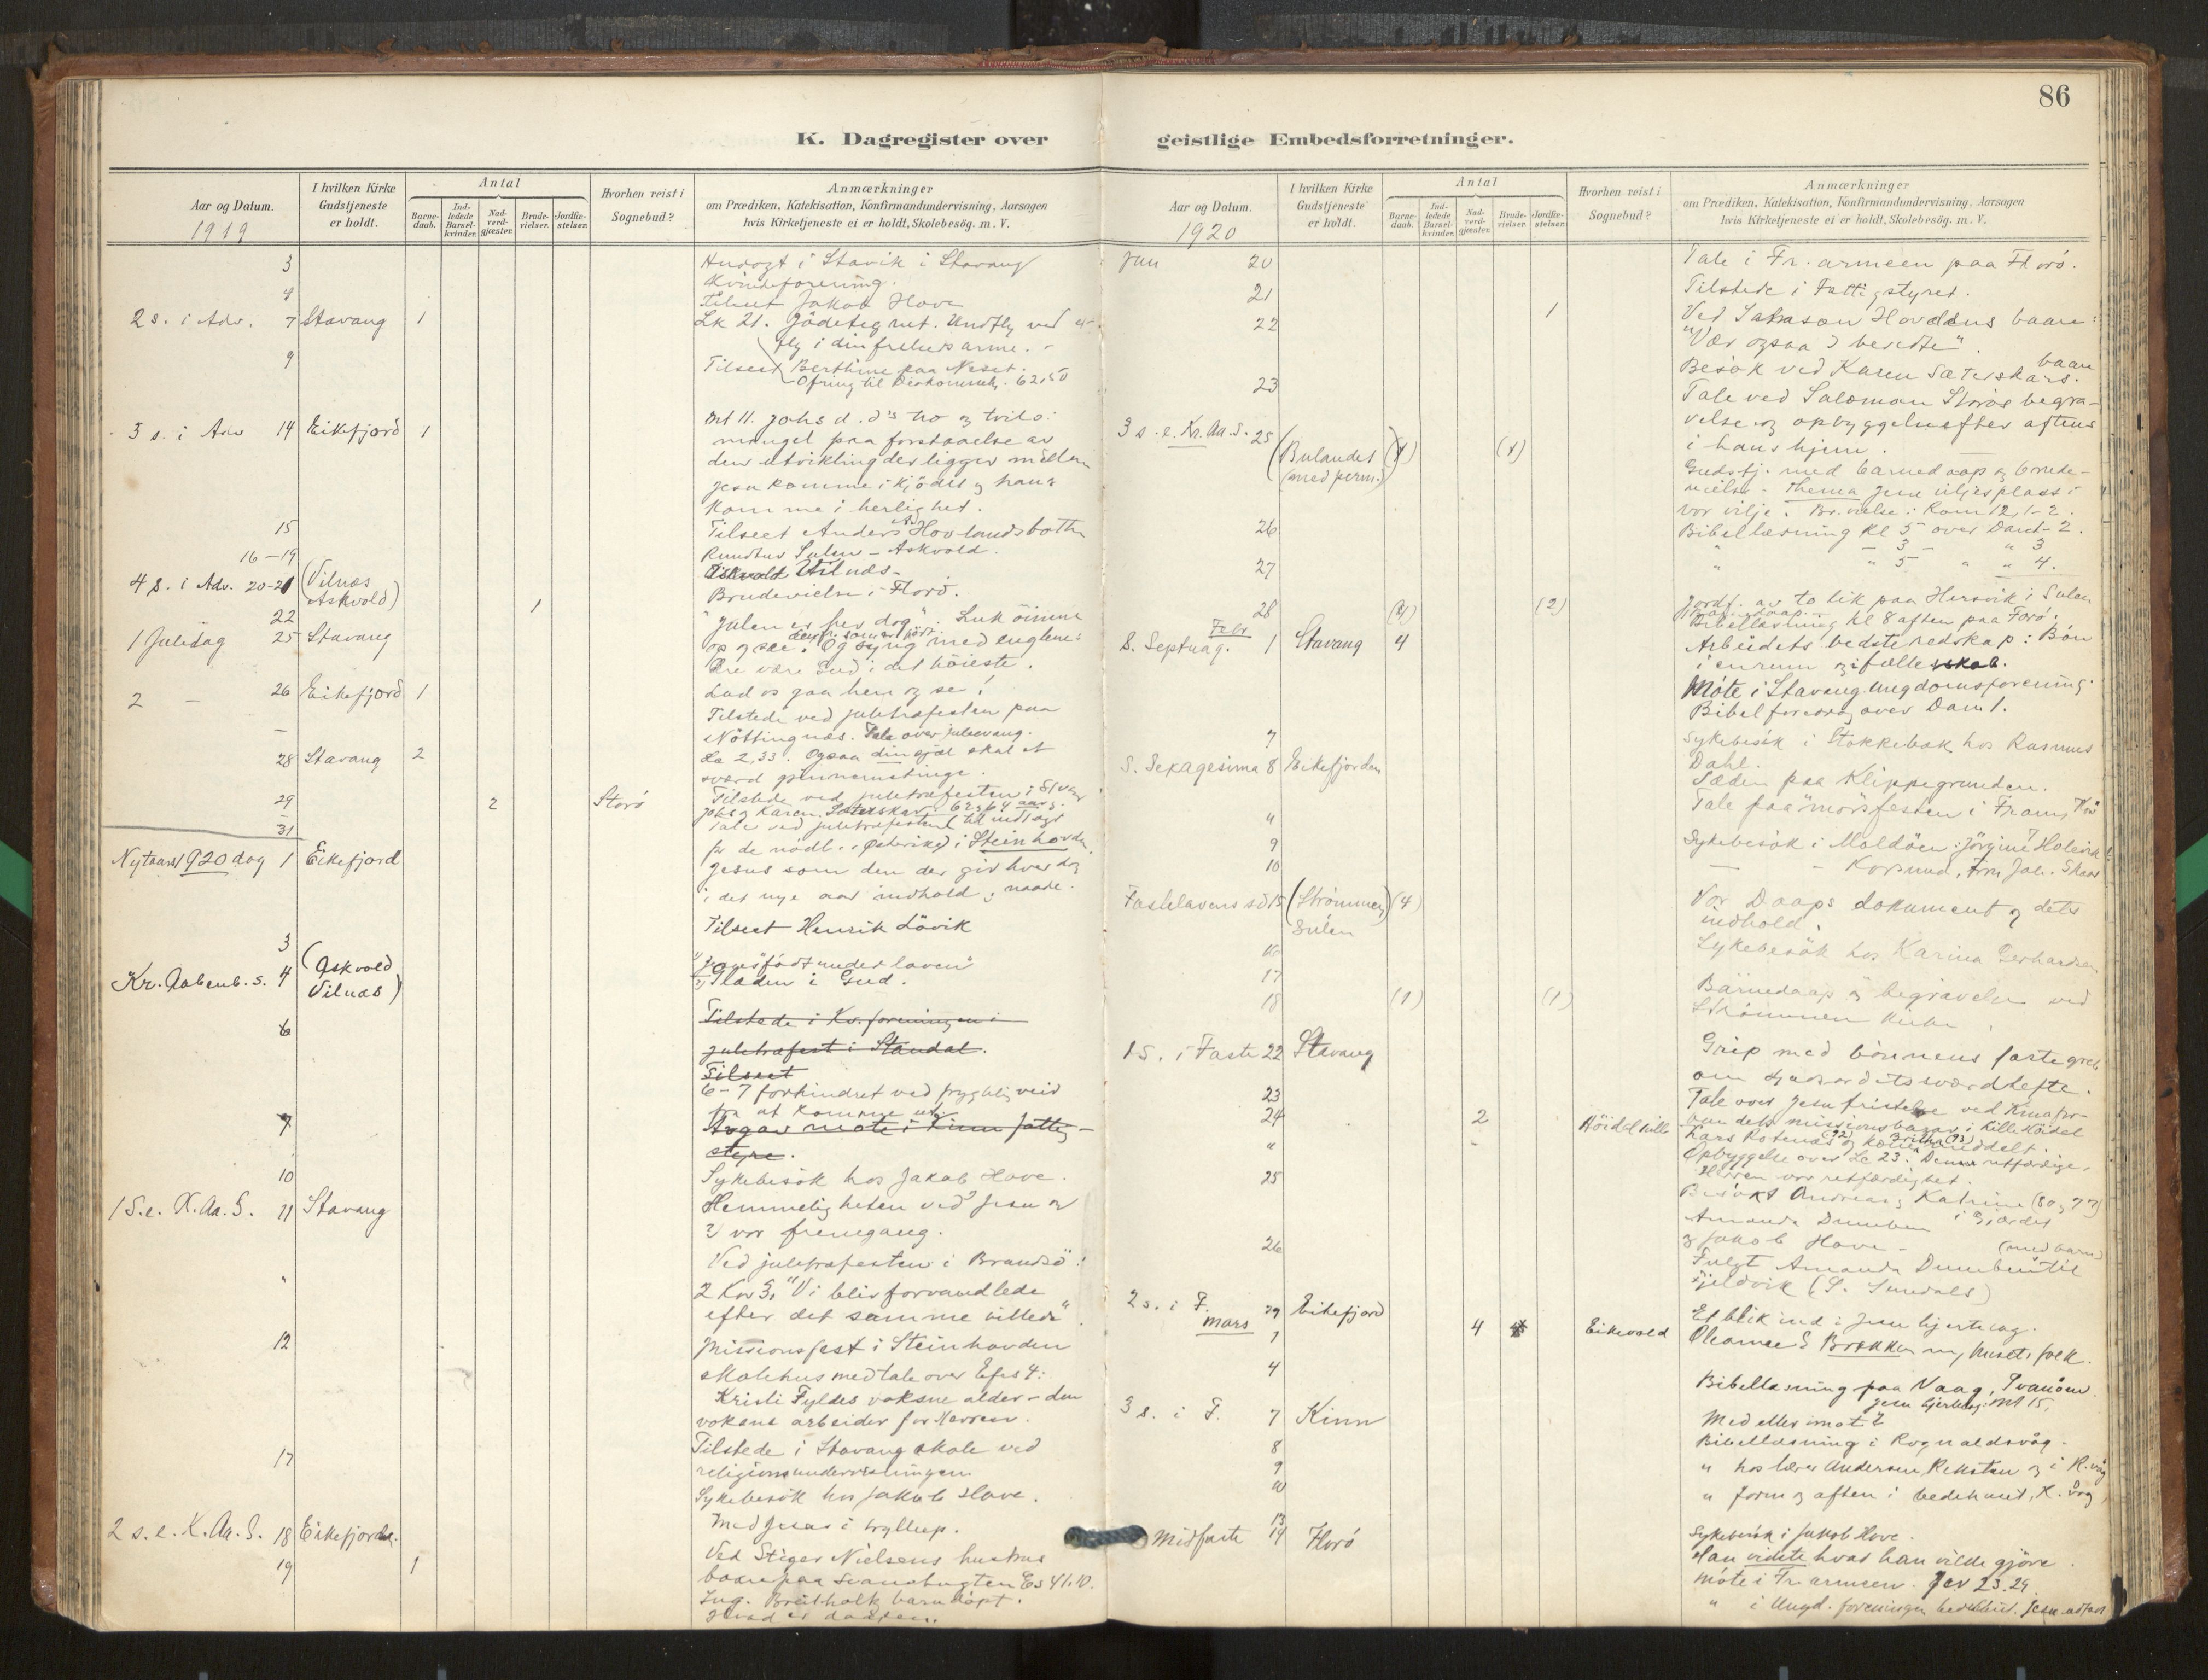 86
K. Dagregister over geistlige Embedsforretninger.
Aar og Datum.
1919
I hvilken Kirke Gudstjeneste er holdt.
Antal
Barne-daab.
Ind-ledede Barsel-kvinder.
Nad-verd-gjester.
Brude-vielser.
Jordfæ-stelser.
Hvorhen reist i Sognebud?
Anmærkninger
om Prædiken, Katekisation, Konfirmandundervisning, Aarsagen
hvis Kirketjeneste ei er holdt, Skolebesøg. m. V.
3 i Stavik i Stavang
Kvindeforening.
4 Tilseet Jakob Hove
2 s. i Adv. 7 Stavang 1 Lk 21. Undfly ved
fly i din frelsers arme. -
9 Tilseet Berthine paa Neset.
Ofring til 62,50
3 s. i Adv 14 Eikefjord 1 Mt 11. Johs d. d's tro og tvil:
mangel paa forstaaelse av
den utvikling der ligger mellem
Jesu komme i kjödet og hans
komme i herlighet.
15 Tilseet Anders Hovlandsbotn
16-19 Rundtur Sulen - Askvold.
4 s. i Adv. 20-21 (Vilnæs Askvold) Vilnæs-
22 1 Brudevielse i Florö.
1 Juledag 25 Stavang "Julen er her dog". Luk öinene
op og see. Og syng med englene:
Ære være Gud i det höieste.
2 - 26 Eikefjord 1 Lad os gaa hen og se!
Tilstede ved juletræfesten paa
Nöttingnæs. Tale over juleevang.
28 Stavang 2 Lu 2,33. Ogsaa din sjæl skal et
sværd gjennemstinge.
29 2 Storö Tilstede ved juletræfesten i
Johs og Karen 62 og 64 aar.
31 Tale ved juletræfesten til indtægt
fr de nödl. i Österike i Steinhovden
Nytaars 1920 dag 1 Eikefjord Jesus som den der gir hver dag
i det nye aar indhold og naade.
3 Tilseet Henrik Lövik
Kr. Aabenb. s. 4 (Askvold Vilnæs) "Jesus født under loven"
2) Glæden i Gud.
6 Tilstede i Kv. foreningen i
juletræfest i Standal.
Tilseet
6-7 forhindret ved frygtelig veir
fra at komme ut.
7 Avgav møte i Kinn fattig-
styre.
10 Sykebesök hos Jakob Hove.
1 S. e. K. Aa. S. 11 Stavang Hemmeligheten ved Jesu og
2) vor fremgang.
" Ved juletræfesten i Brandsö:
2 Kor 3. "Vi blir forvandlede
efter det samme billede".
12 Missionsfest i Steinhovden
skolehus med tale over Efes 4:
Kristi Fyldes voksne alder - den
voksne arbeider for Herren.
17 Tilstede i Stavang skole ved
religionsundervisningen
Sykebesök hos Jakob Hove.
2 s. e. K. Aa. S. 18 Eikefjord Med Jesus i bryllup.
19 1 Ved Stiger Nielsens hustrus
baare paa Svanøbugten Es 41.10.
Ing. barn döpt.
Hvad er daapen.
Aar og Datum.
1920
I hvilken Kirke Gudstjeneste er holdt.
Antal
Barne-daab.
Ind-ledede Barsel-kvinder.
Nad-verd-gjester.
Brude-vielser.
Jordfæ-stelser.
Hvorhen reist i Sognebud?
Anmærkninger
om Prædiken, Katekisation, Konfirmandundervisning, Aarsagen
hvis Kirketjeneste ei er holdt, Skolebesög. m. V.
Jan 20 Tale i Fr. armeen paa Florö.
21 Tilstede i Fattigstyret.
22 1 Ved baare:
"Vær ogsaa I beredte".
Besök ved Karen baare
23 Tale ved Salomon Storös begra-
velse og opbyggelse efter aftens
i hans hjem.
3 s. e. Kr. Aa. S. 25 (Bulandet (med perm.) (1) Gudstj. med barnedaap og brude-
vielse - Thema Jesu viljes plass i
vor vilje. Br. vielse: Rom 12, 1-2.
26 Bibellæsning kl 5 over Dan 1-2.
" - 3 - " 3
27 " " 5 " " 4.
28 (2) Jordf. av to lik paa Hersvik i Sulen
Bibellæsning kl 8 aften paa
S. Septuag. Febr 1 Stavang 4 Arbeidets bedste redskap: Bön
i enrum og i fællesskab.
Möte i Stavang Ungdomsforening.
Bibelforedrag over Dan 1.
7 Sykebesök i Stokkebæk hos Rasmus
Dahl.
S. Sexagesima 8 Eikefjorden Sæden paa Klippegrunden.
" Tale paa "morsfesten" i Fram,
9 Sykebesök i Moldöen: Jörgine
10 - - Korsund,
Fastelavens sd 15 (Strömmen) Sulen (4) Vor Daaps dokument og dets
indhold.
16 Sykebesök hos Karina Gerhardsen
17
18 (1) (1) Barnedaap og begravelse ved
Strömmen kirke.
1 S. i Faste 22 Stavang Grip med bönnens faste greb
om Guds ords sværdhefte.
23 Tale over Jesu fristelse ved Kina for-
24 2 Höidal lille missionsbasar i Lille Höidal
Lars Rotenæs (92) og kone Britha (93)
" Opbyggelse over Lc 23:
Herren vor retfærdighet.
25 Besökt Andreas og Katrine (80, 77)
Amanda
og Jakob Hove - (med barn)
26 Fulgt Amanda til
Fjeldvik
2 s. i F. 29 Eikefjord Et blik ind i Jesu hjertelag.
mars 1 4 Eikevold folk.
4 Bibellæsning paa Vaag,
Jesu hjertelag: Mt 15.
3 s. i F. 7 Kinn Med eller imot?
8 Bibellæsning i Rognaldsvåg.
9 " hos lærer Andersen, Reksten og i R.våg
10 " form og aften i bedehuset, R. våg
13 Sykebesök i Jakob Hove.
Midfaste 14 Florö Han vidste hvad han vilde gjöre
Möte i Fr. armeen. Jer 23.29.
" i Ungd. foreningen bedehus.